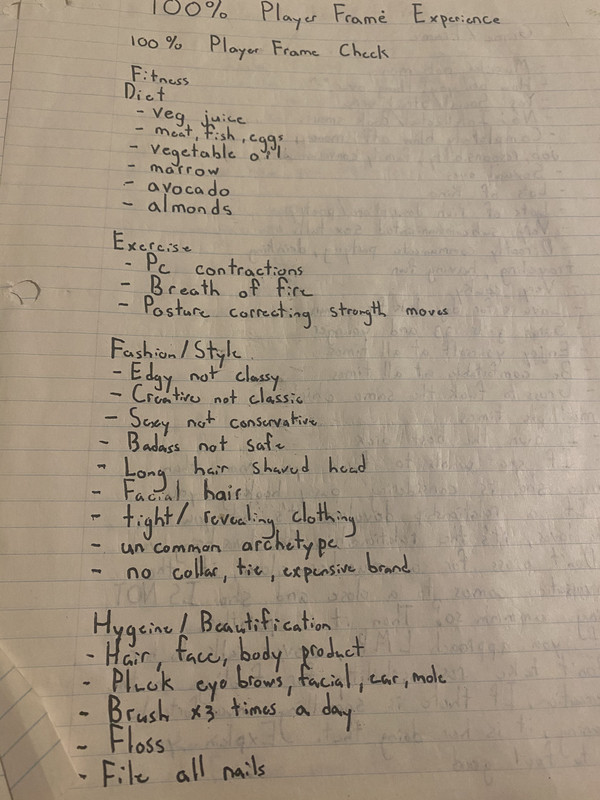 100% Player Frame Experience
100% Player Frame Check
Fitness
Diet
- veg juice
- meat, fish, eggs
- vegetable oil
- marrow
- avocado
- almonds
Exercise
- Pc contractions
- Breath of fire
- Posture correcting strength moves
Fashion/Style
- Edgy not classy
- Creative not classic
- Sexy not conservative
- Badass not safe
- Long hair shaved head
- Facial hair
- tight/ revealing clothing
- uncommon archetype
- no collar, tie, expensive brand
Hygeine/ Beautification
- Hair, face, body product
- Pluck eye brows, facial, ear, mole
- Brush x3 times a day
- Floss
- File all nails